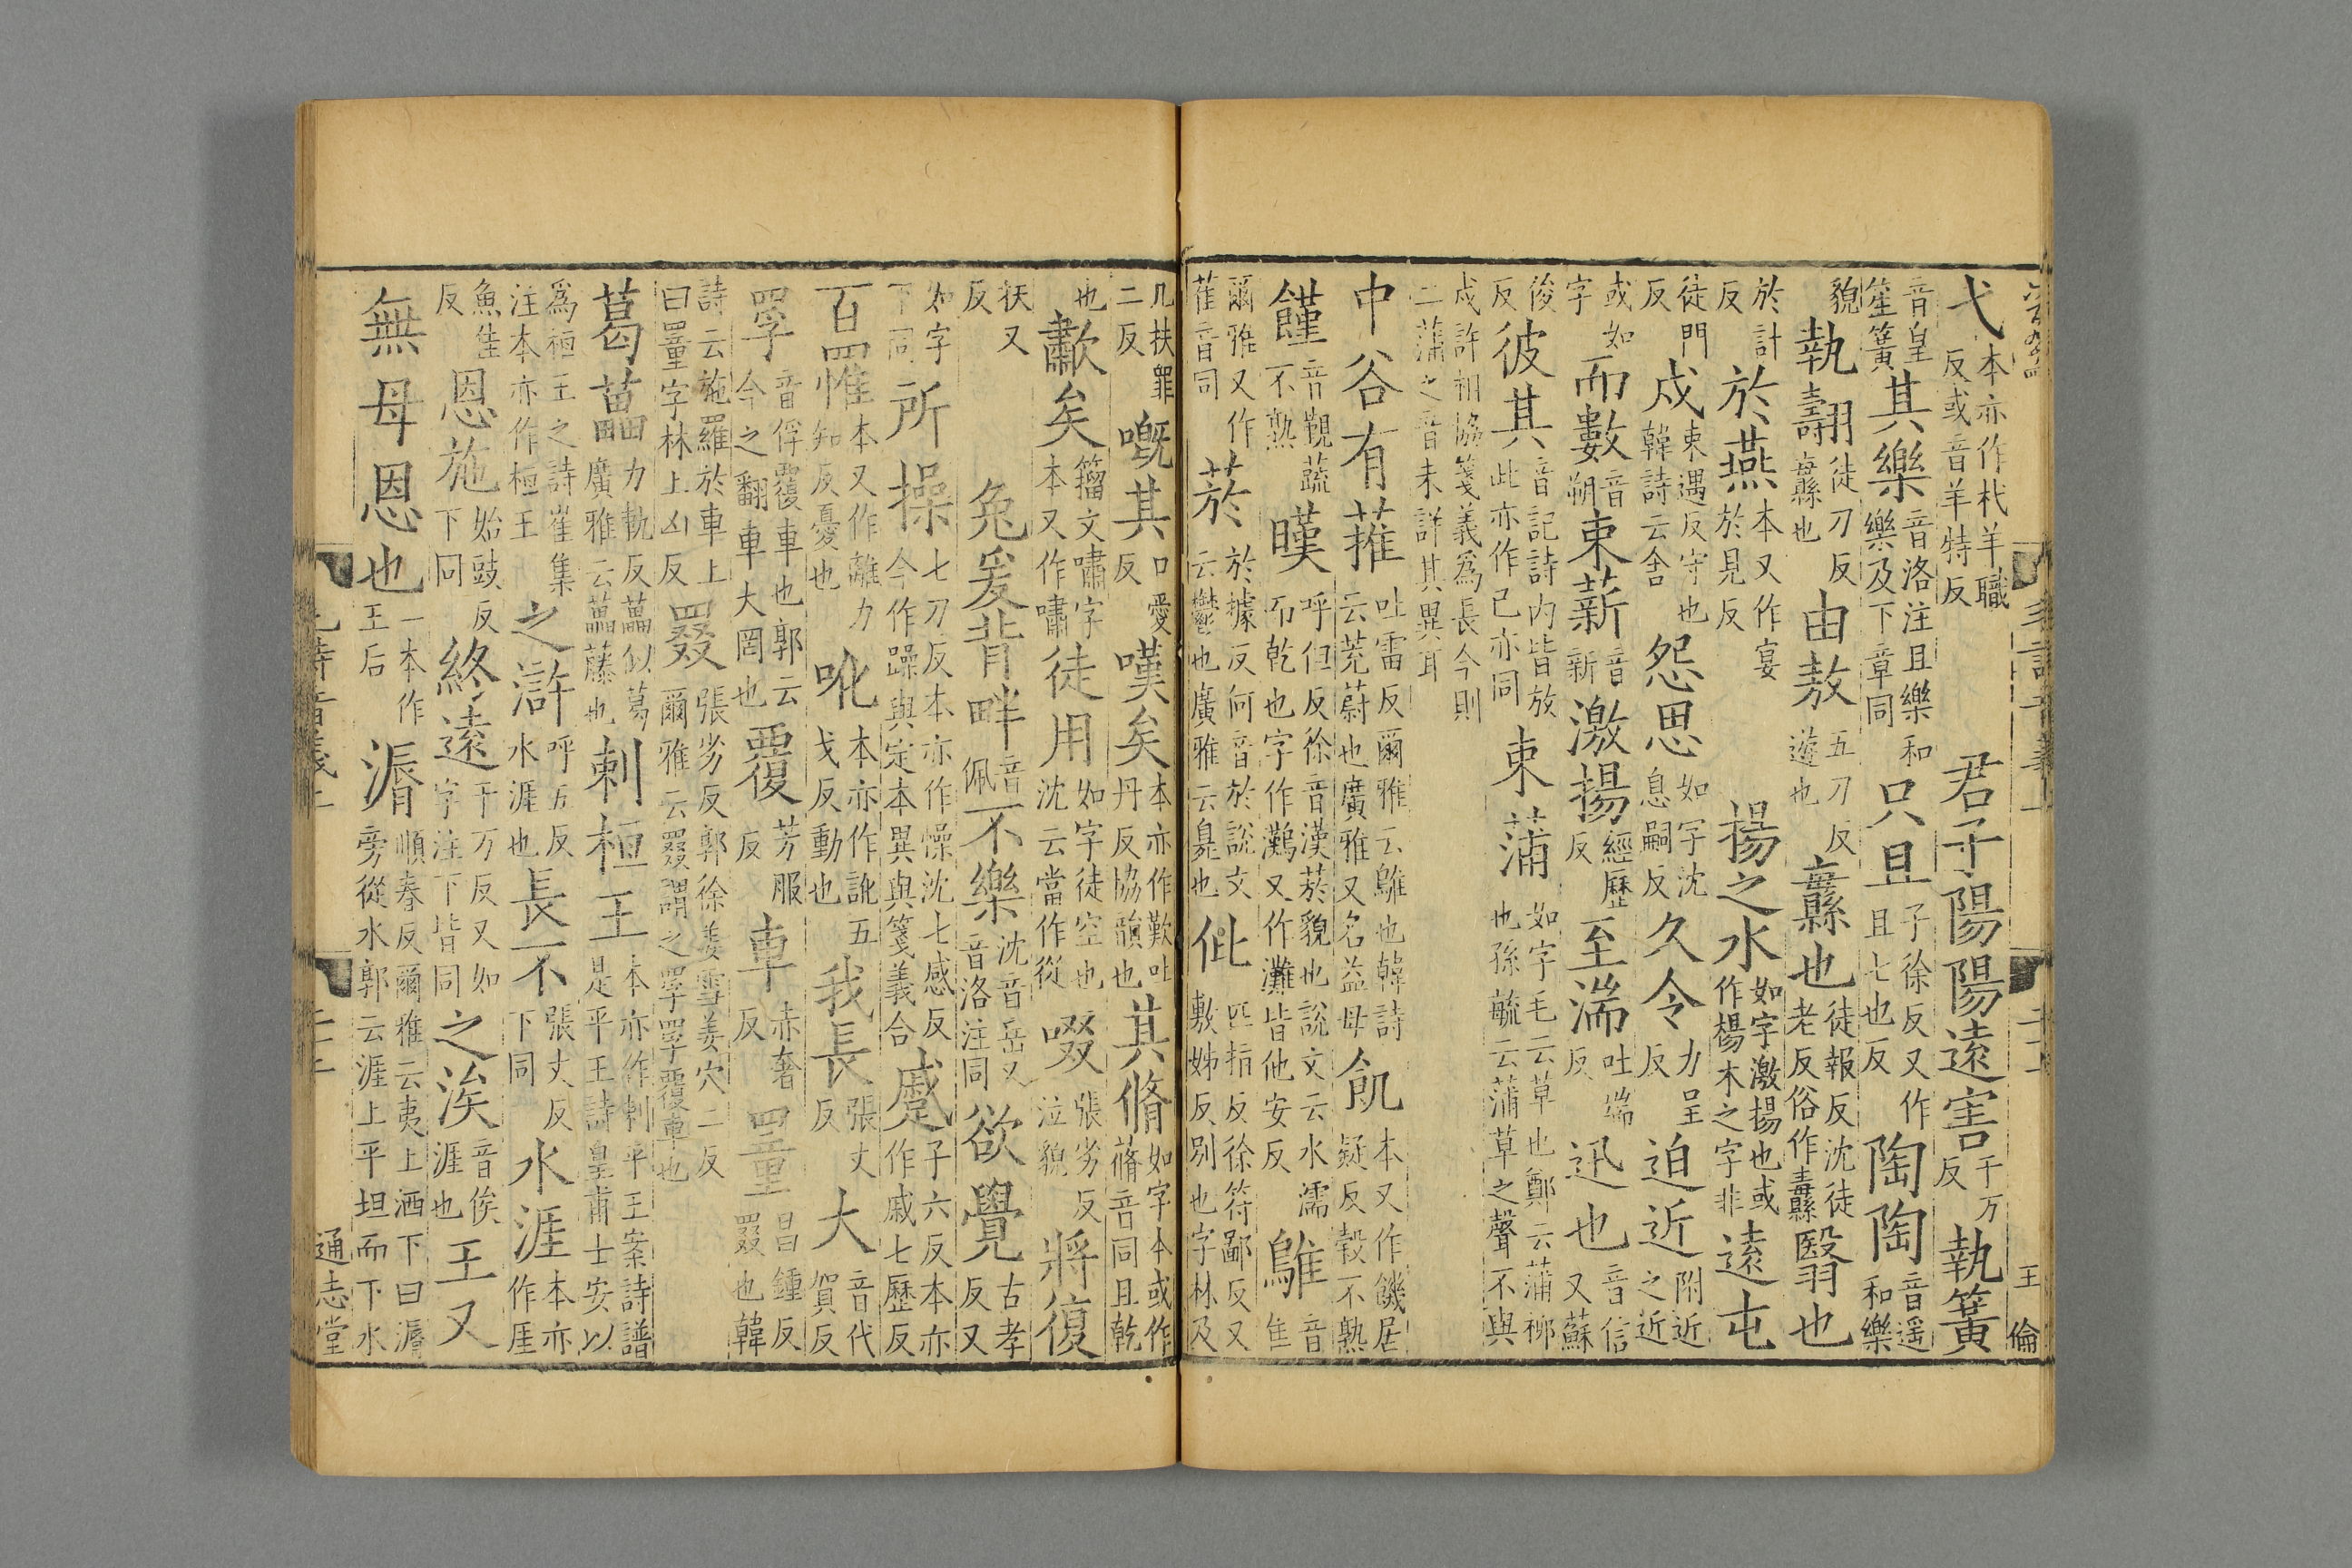 弋本亦作杙羊職反或音羊特反君子陽陽遠害千万反執簧
音皇笙簧其樂音洛注且樂和樂及下章同只且子徐反又作且七也反陶陶音遥和樂
貌執翿徒刀反纛也由敖五刀反遊也纛也徒報反沈徒老反俗作纛翳也
於計反於燕本又作宴於見反揚之水如字激揚也或作楊木之字非遠屯
徒門反戍束遇反守也韓詩云舍怨思如字沈息嗣反久令力呈反迫近附近之近
或如字而數音朔束薪音新激揚經歷反至湍吐端反迅也音信又蘇
俊反彼其音記詩内皆放此亦作己亦同束蒲如字毛云草也鄭云蒲柳也孫毓云蒲草之聲不與
戍許相協箋義爲長今則二蒲之音未詳其異耳
中谷有蓷吐雷反爾雅云鵻也韓詩云茺蔚也廣雅又名益母飢本又作饑居疑反穀不熟
饉音覲蔬不熟暵呼但反徐音漢菸貌也說文云水濡而乾也字作鷬又作灘皆他安反鵻音隹
爾雅又作萑音同菸於據反何音於說文云鬱也廣雅云臰也仳匹指反徐符鄙反又敷姊反別也字林及
几扶罪二反嘅其口愛反嘆矣本亦作歎吐丹反協韻也其脩如字本或作蓨音同且乾
也歗矣籀文嘯字本又作嘯徒用如字徒空也沈云當作從啜張劣反泣貌將復
扶又反兔爰背畔音佩不樂沈音岳又音洛注同欲覺古孝反又
如字下同所操七刀反本亦作懆沈七感反今作躁與定本異與箋義合蹙子六反本亦作戚七歷反
百罹本又作離力知反憂也吪本亦作訛五戈反動也我長張丈反大音代賀反
罦音俘覆車也郭云今之翻車大罔也覆芳服反車赤奢反罿昌鍾反罬也韓
詩云施羅於車上曰罿字林上凶反罬張劣反郭徐姜雪姜穴二反爾雅云罬謂之罦罦覆車也
葛藟力軌反藟似葛廣雅云藟藤也刺桓王本亦作刺平王案詩譜是平王詩皇甫士安以
爲桓王之詩崔集注本亦作桓王之滸呼五反水涯也長不張丈反下同水涯本亦作厓
魚隹反恩施始豉反下同終遠于万反又如字注下皆同之涘音俟涯也王又
無母恩也一本作王后漘順春反爾雅云夷上洒下曰漘旁從水郭云涯上平坦而下水
二十二
王倫
通志堂